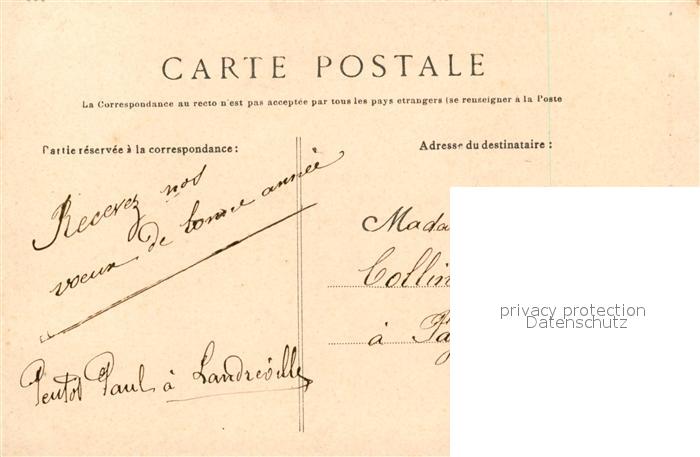 CARTE POSTALE
La Correspondance au recto n'est pas acceptée par tous les pays étrangers (se renseigner à la Poste
Partie réservée à la correspondance :
Adresse du destinataire :
Recevez nos
voeux de bonne année
Pentot Paul à Landreville
Mada
Collin
à Pa
privacy protection
Datenschutz